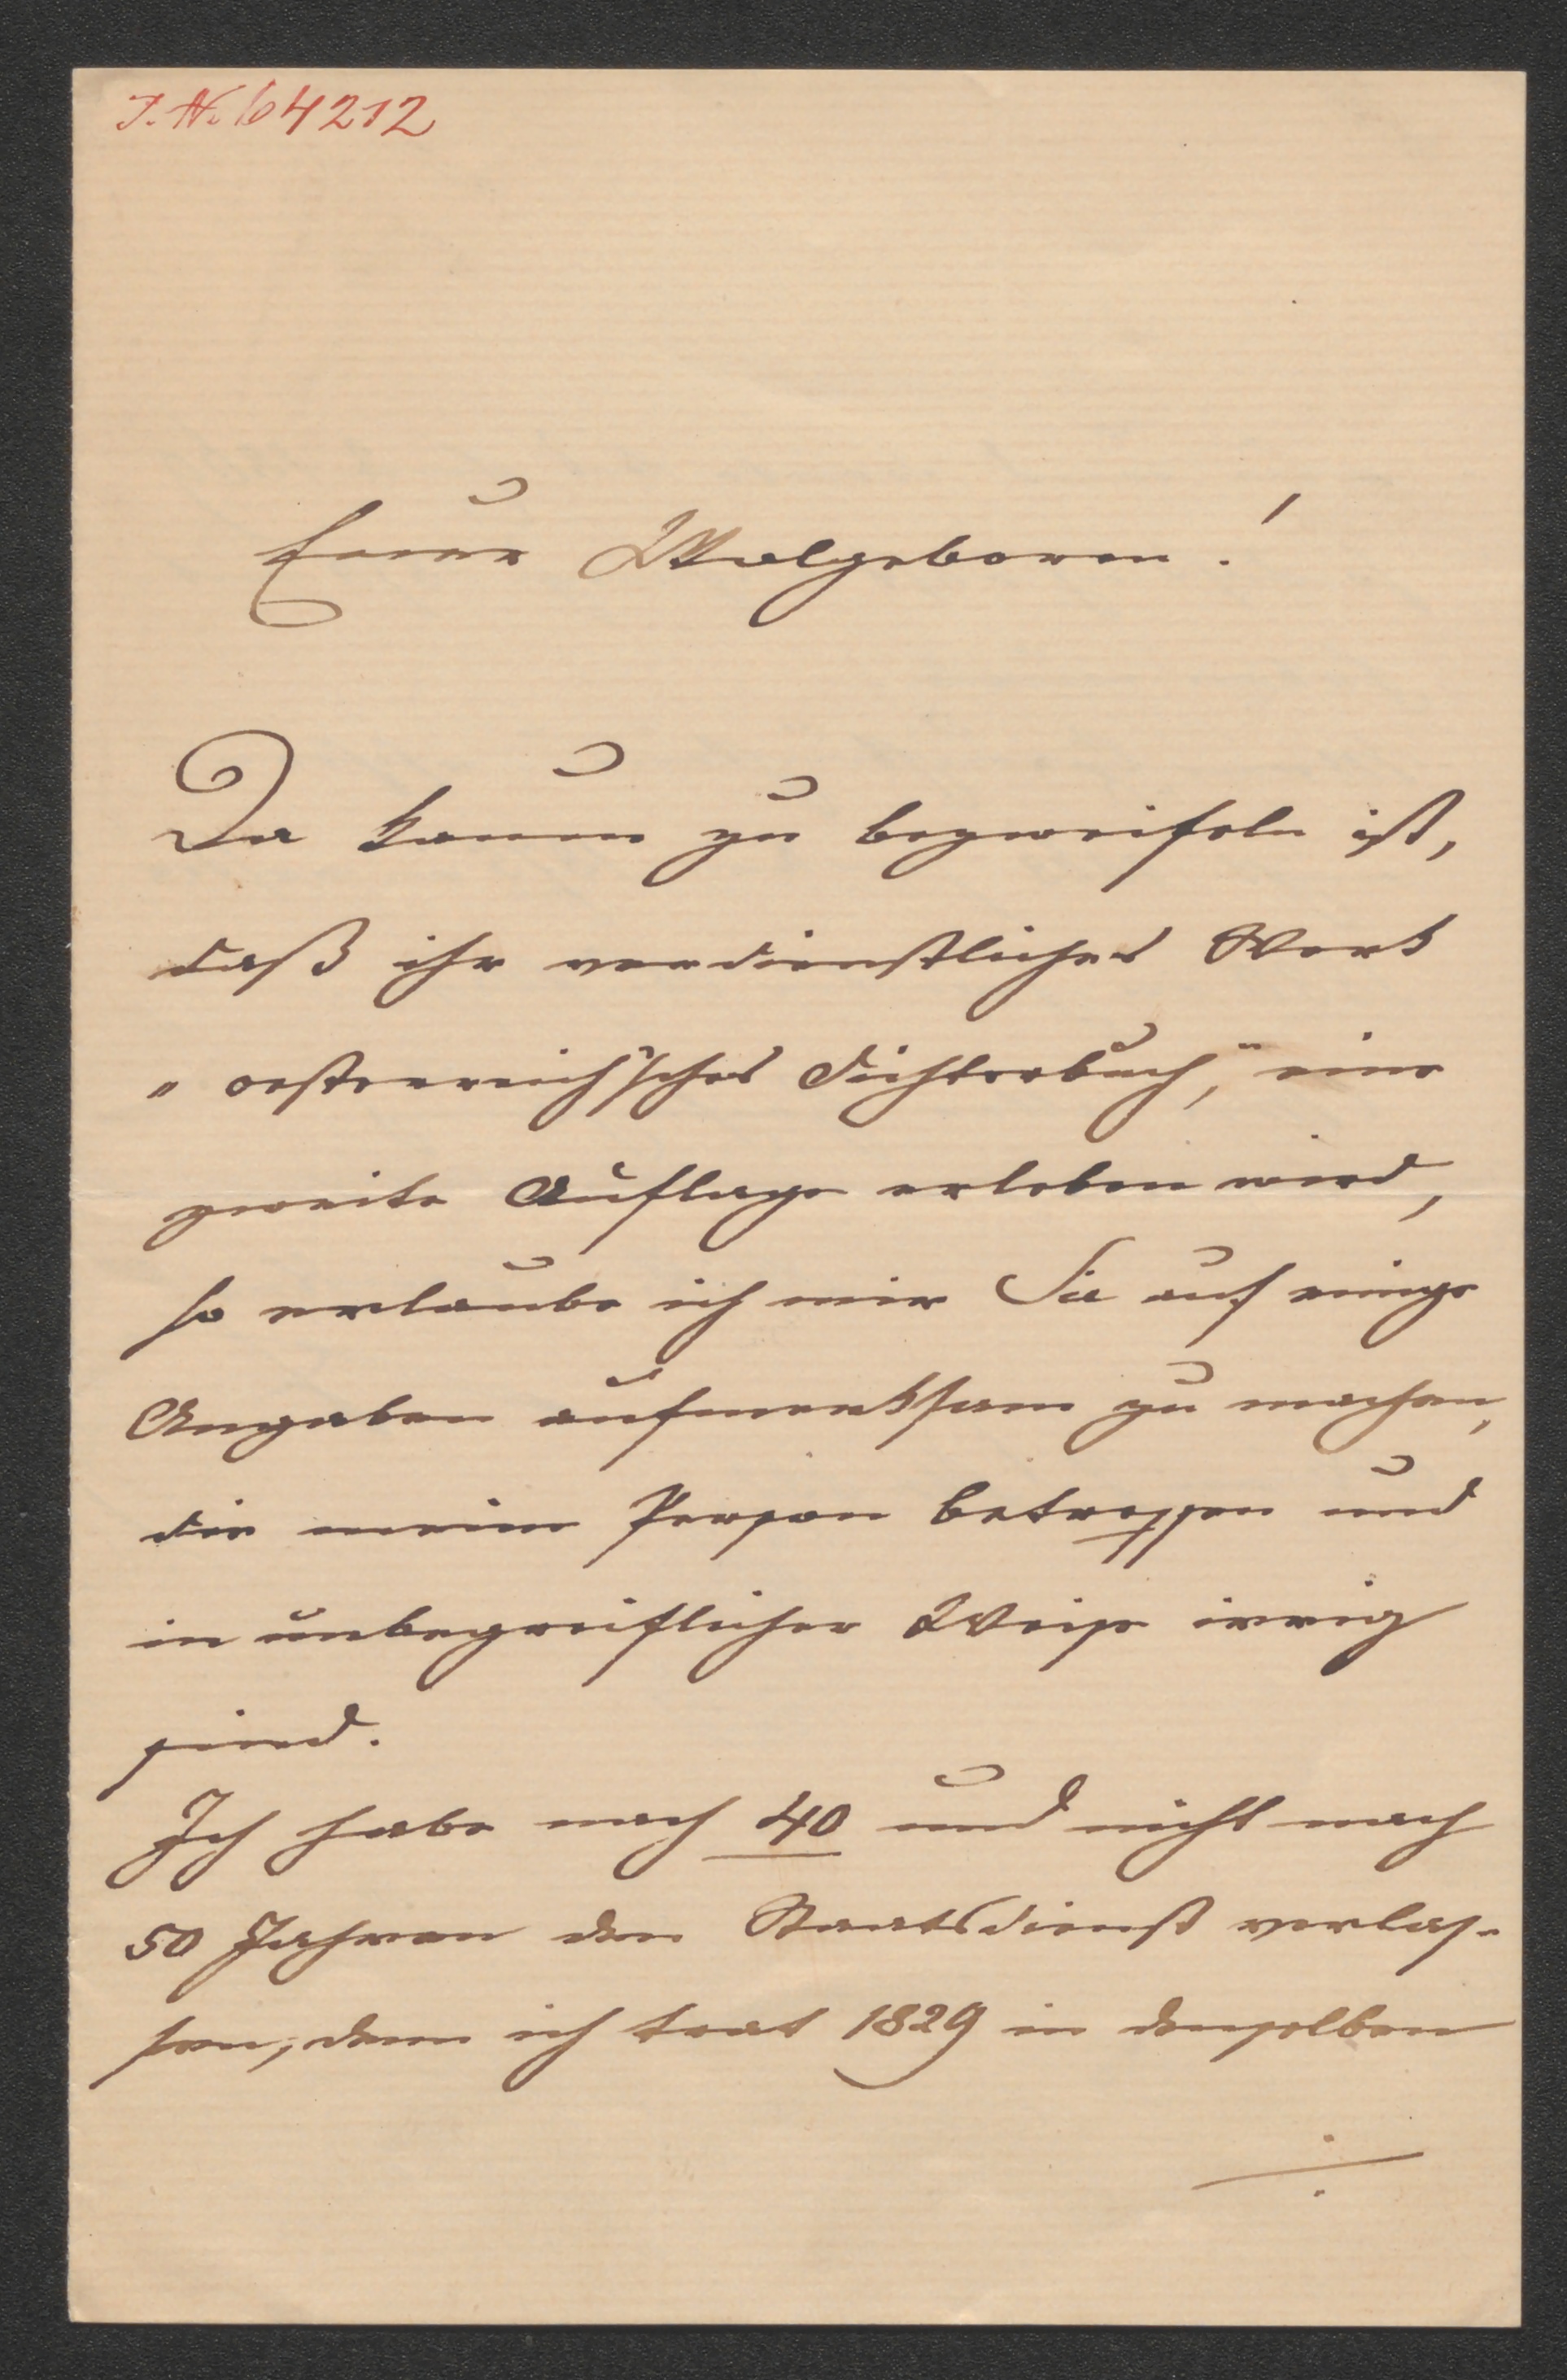 J. N. 64212
Euer Wolgeboren!
Da kaum zu bezweifeln ist,
daß ihr verdienstliches Werk
„oesterreich'sches Dichterbuch," eine
zweite Auflage erleben wird,
so erlaube ich mir Sie auf einige
Angaben aufmerksam zu machen,
die meine Person betreffen und
in unbegreiflicher Weise irrig
sind.
Ich habe nach 40 und nicht nach
50 Jahren den Staatsdienst verlas-
sen, denn ich trat 1829 in denselben